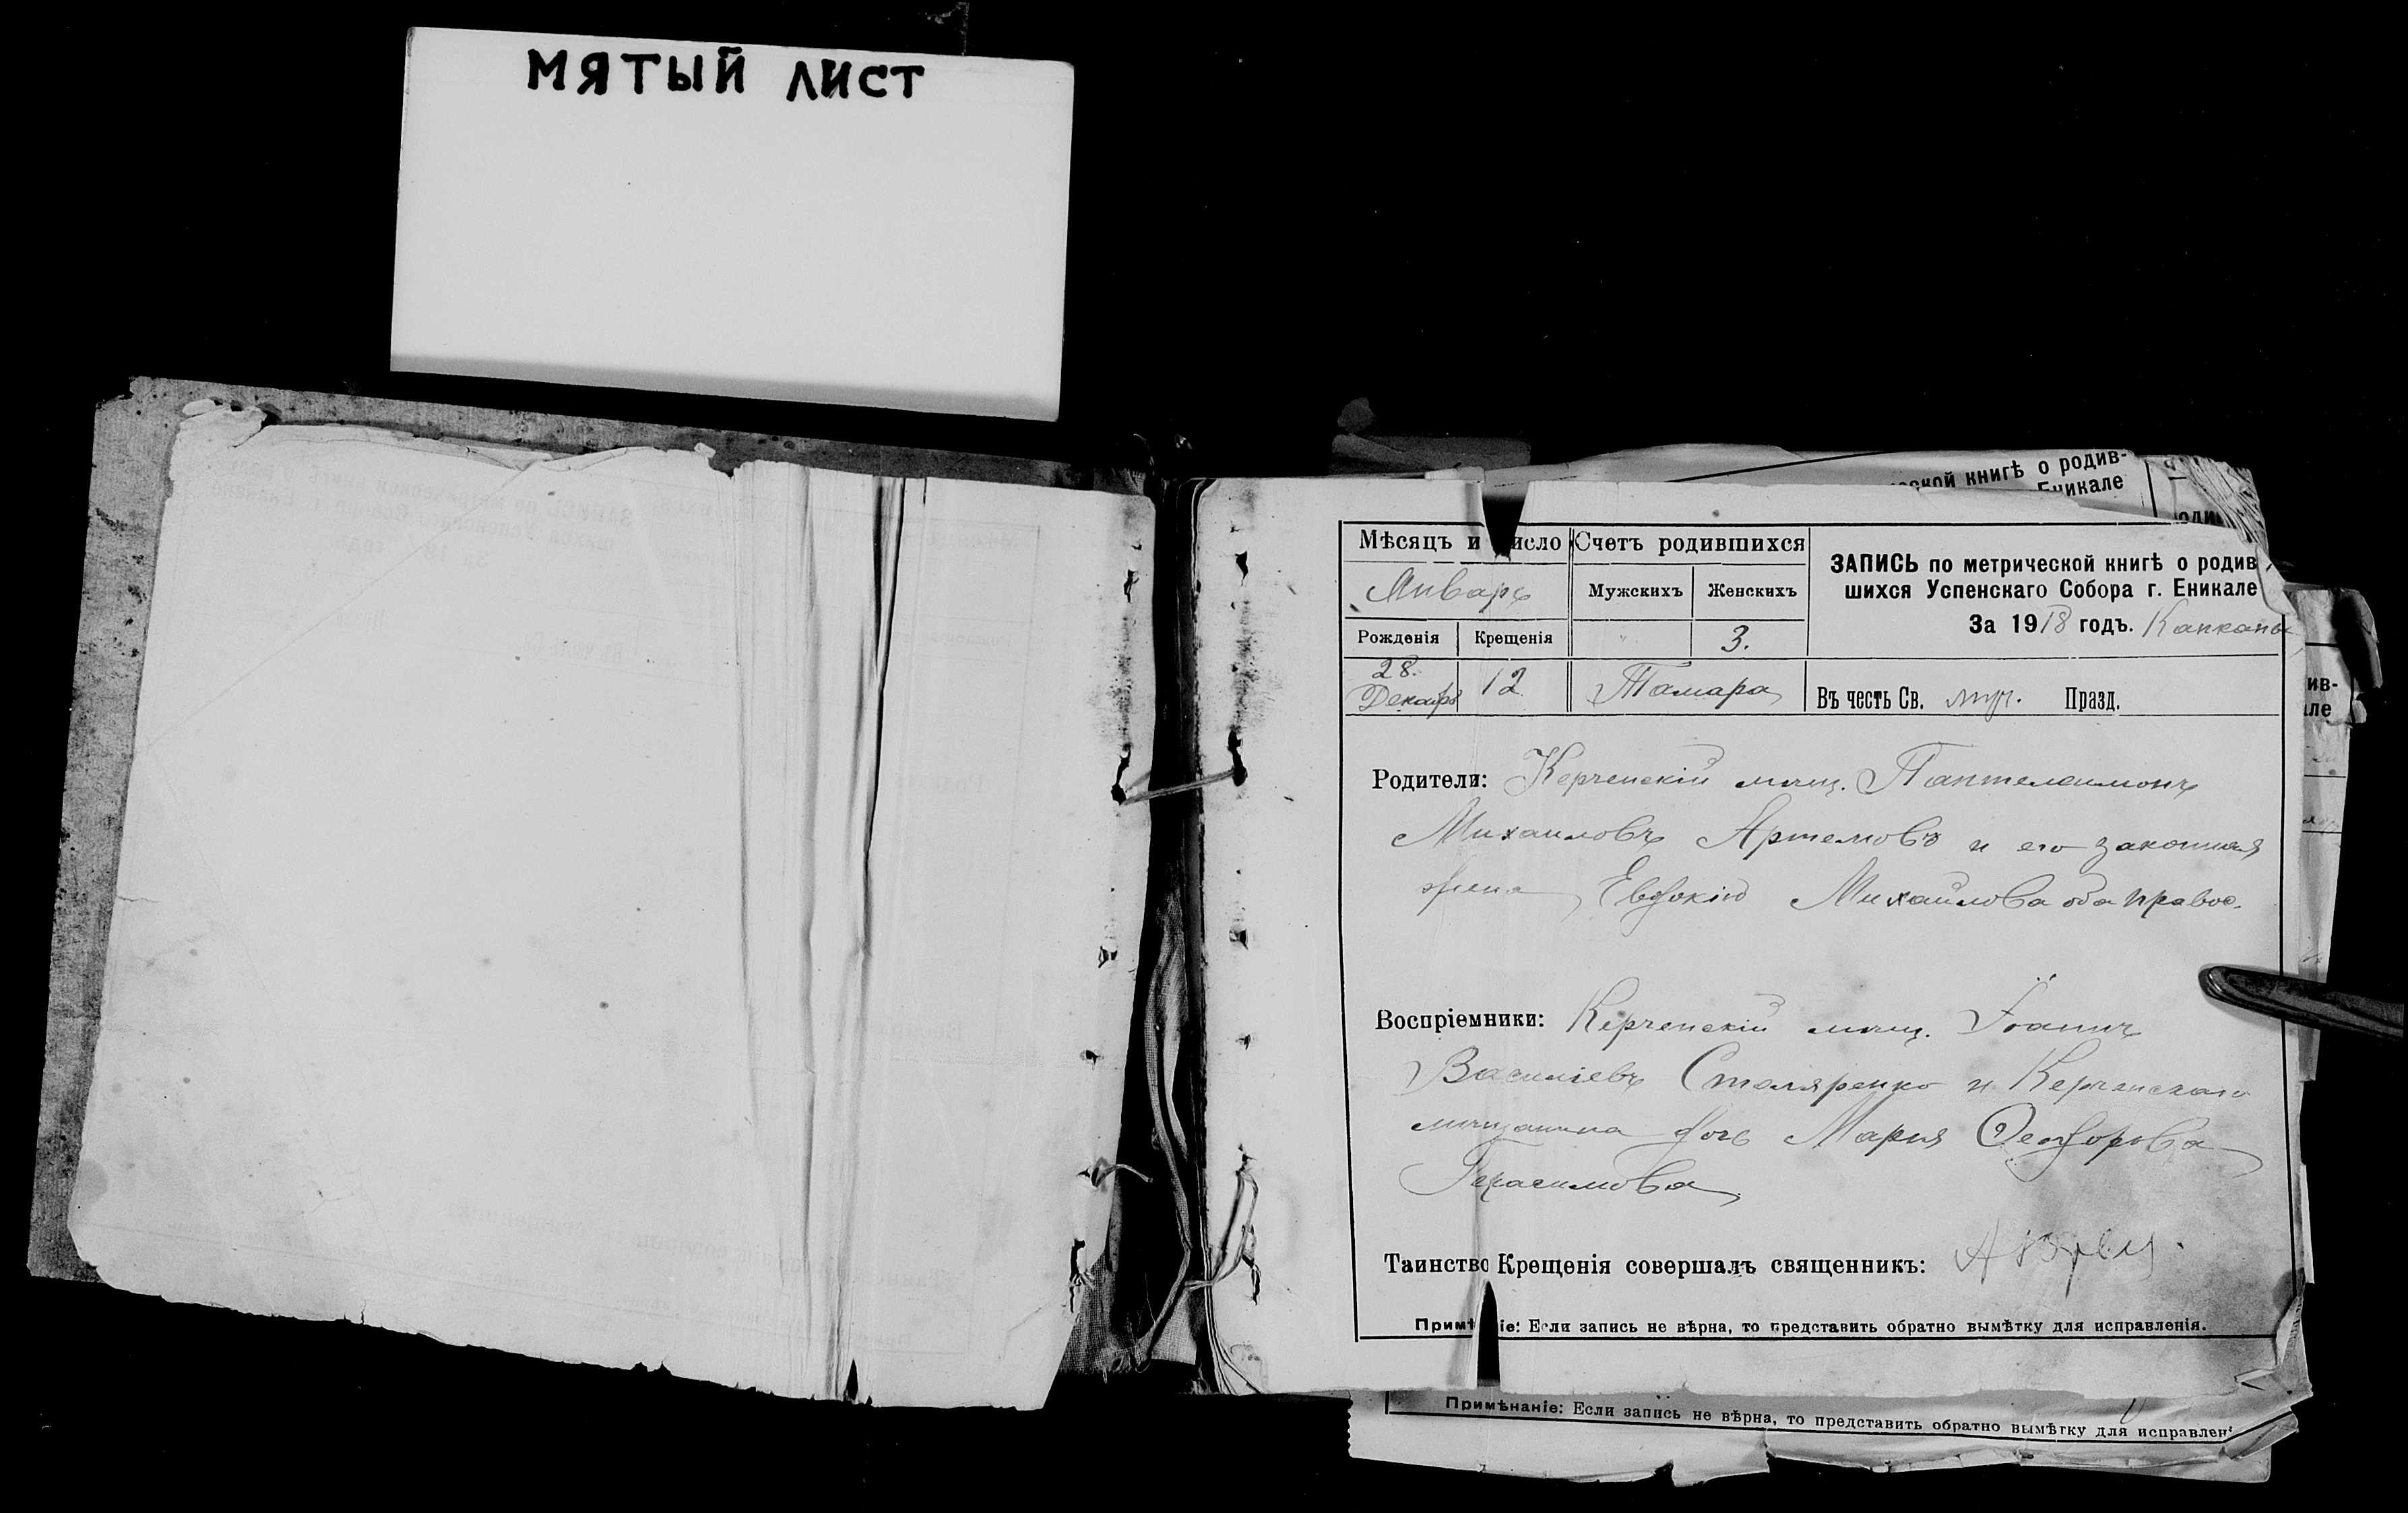 МЯТЫЙ ЛИСТ
ской книгѣ о родив-
Еникале
Мѣсяцъ и число
Счетъ родившихся
ЗАПИСЬ по метрической книгѣ о родив
шихся Успенскаго Собора г. Еникале
За 1918 годъ. Капканы
Январь
Мужскихъ Женскихъ
Рожденія Крещенія
" 3.
28. Декабр 12 Тамара
Въ честь Св. муч. Празд.
Родители: Керченскій мѣщ. Пантелеимонъ
Михаиловъ Артемовъ и его законная
жена Евдокія Михаилова оба правос.
Воспріемники: Керченскій мѣщ. Іоаннъ
Василіевъ Столяренко и Керченскаго
мѣщанина дочь Мария Ѳеодорова
Герасимова
Таинство Крещенія совершалъ священникъ:
Примѣ іе: Если запись не вѣрна, то представить обратно вымѣтку для исправленія.
Примѣнаніе: Если запись не вѣрна, то представить обратно вымѣтку для исправлен